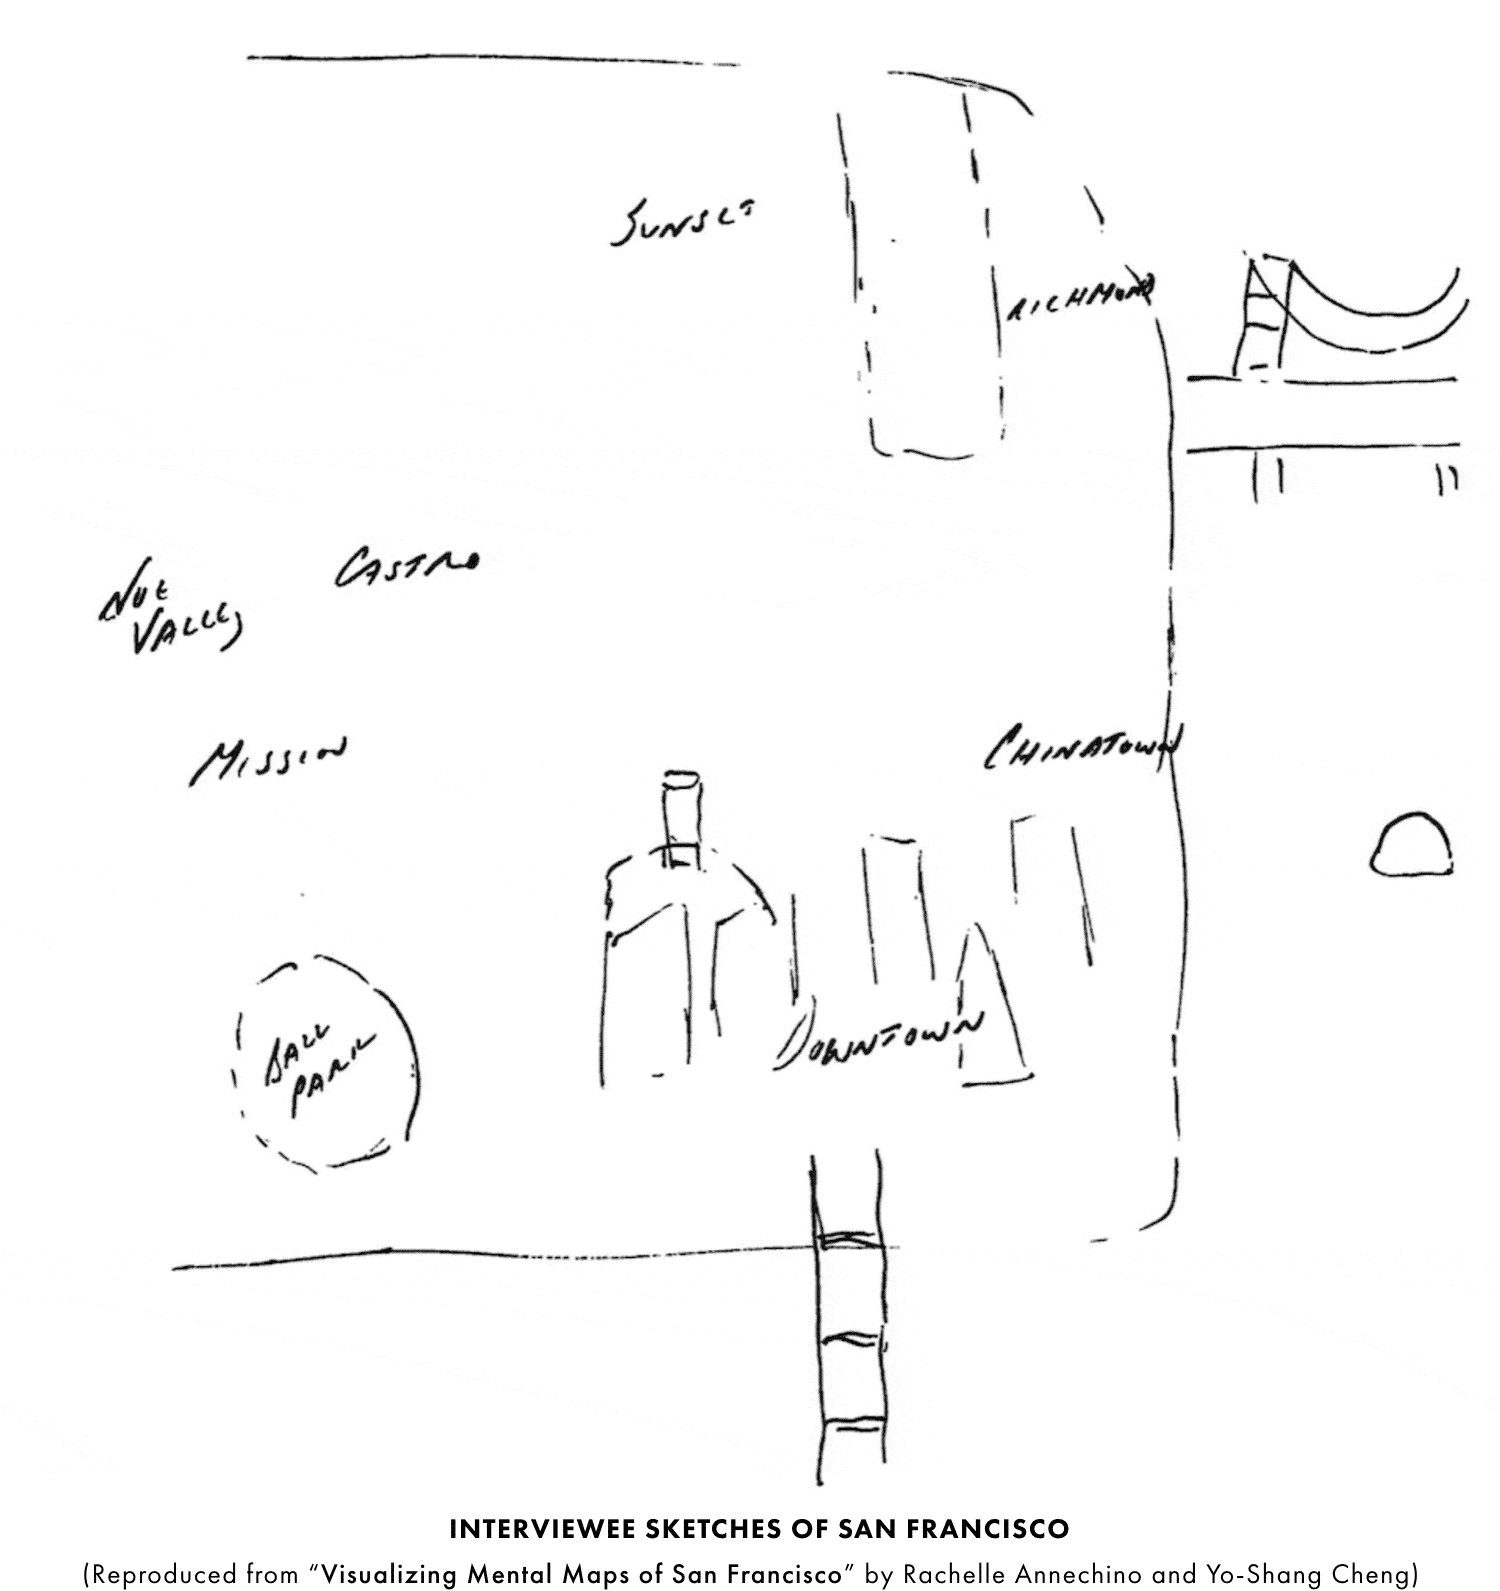 SUNSET
RICHMOND
NOE
VALLEY
CASTRO
MISSION
CHINATOWN
BALL
PARK
DOWNTOWN
INTERVIEWEE SKETCHES OF SAN FRANCISCO
(Reproduced from “Visualizing Mental Maps of San Francisco” by Rachelle Annechino and Yo-Shang Cheng)